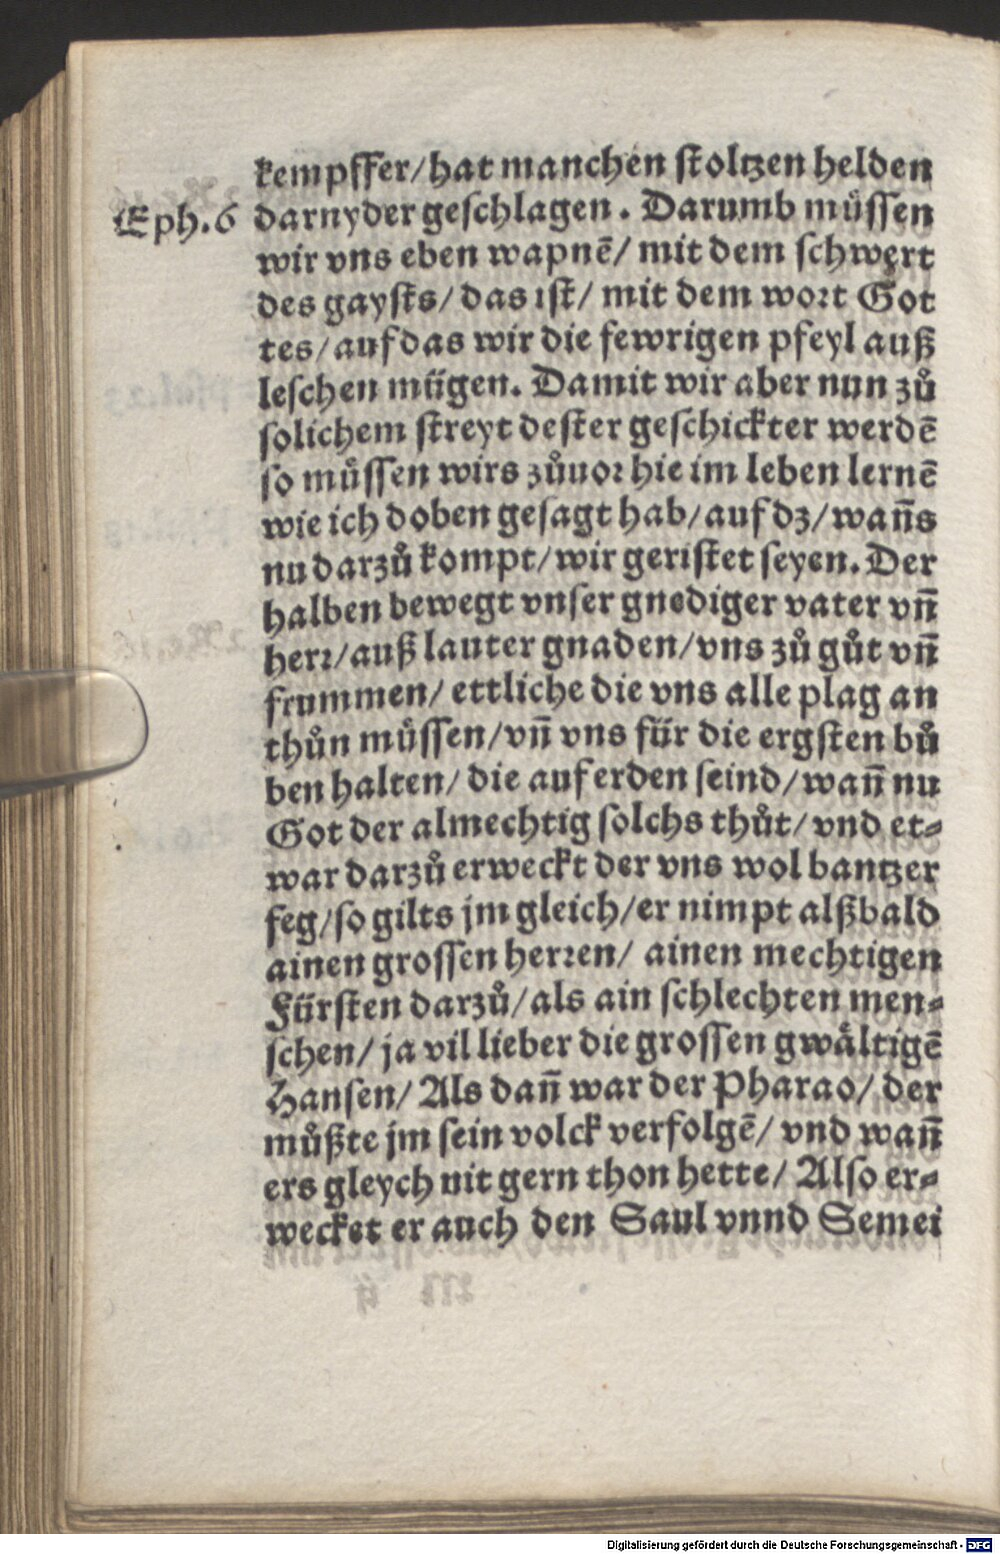 kempffer/hat manchen stoltzen helden
Eph.6 darnyder geschlagen. Darumb müssen
wir vns eben wapnē/ mit dem schwert
des gaysts/das ist/ mit dem wort Got
tes/auf das wir die fewrigen pfeyl auß
leschen mügen. Damit wir aber nun zů
solichem streyt dester geschickter werdē
so müssen wirs zůuor hie im leben lernē
wie ich doben gesagt hab/auf dz/wañs
nu darzů kompt/wir geristet seyen. Der
halben bewegt vnser gnediger vater vñ
herr/auß lauter gnaden/vns zů gůt vñ
frummen/ ettliche die vns alle plag an
thůn müssen/vñ vns für die ergsten bů
ben halten/ die auf erden seind/wañ nu
Got der almechtig solchs thůt/ vnd et-
war darzů erweckt der vns wol bantzer
feg/so gilts jm gleich/er nimpt alßbald
ainen grossen herren/ ainen mechtigen
Fürsten darzů/als ain schlechten men-
schen/ ja vil lieber die grossen gwåltigē
Hansen/ Als dañ war der Pharao/ der
můßte jm sein volck verfolgē/ vnd wañ
ers gleych nit gern thon hette/ Also er-
wecket er auch den Saul vnnd Semei
Digitalisierung gefördert durch die Deutsche Forschungsgemeinschaft - DFG